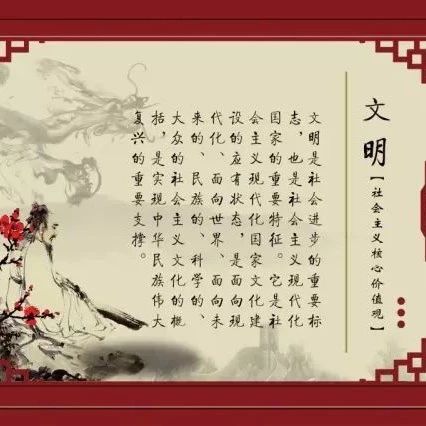 文明
【社会主义核心价值观】
文明是社会进步的重要标
志，也是社会主义现代化
国家的重要特征。它是社
会主义现代化国家文化建
设的应有状态，是面向现
代化、面向世界、面向未
来的，民族的、科学的、
大众的社会主义文化的概
括，是实现中华民族伟大
复兴的重要支撑。